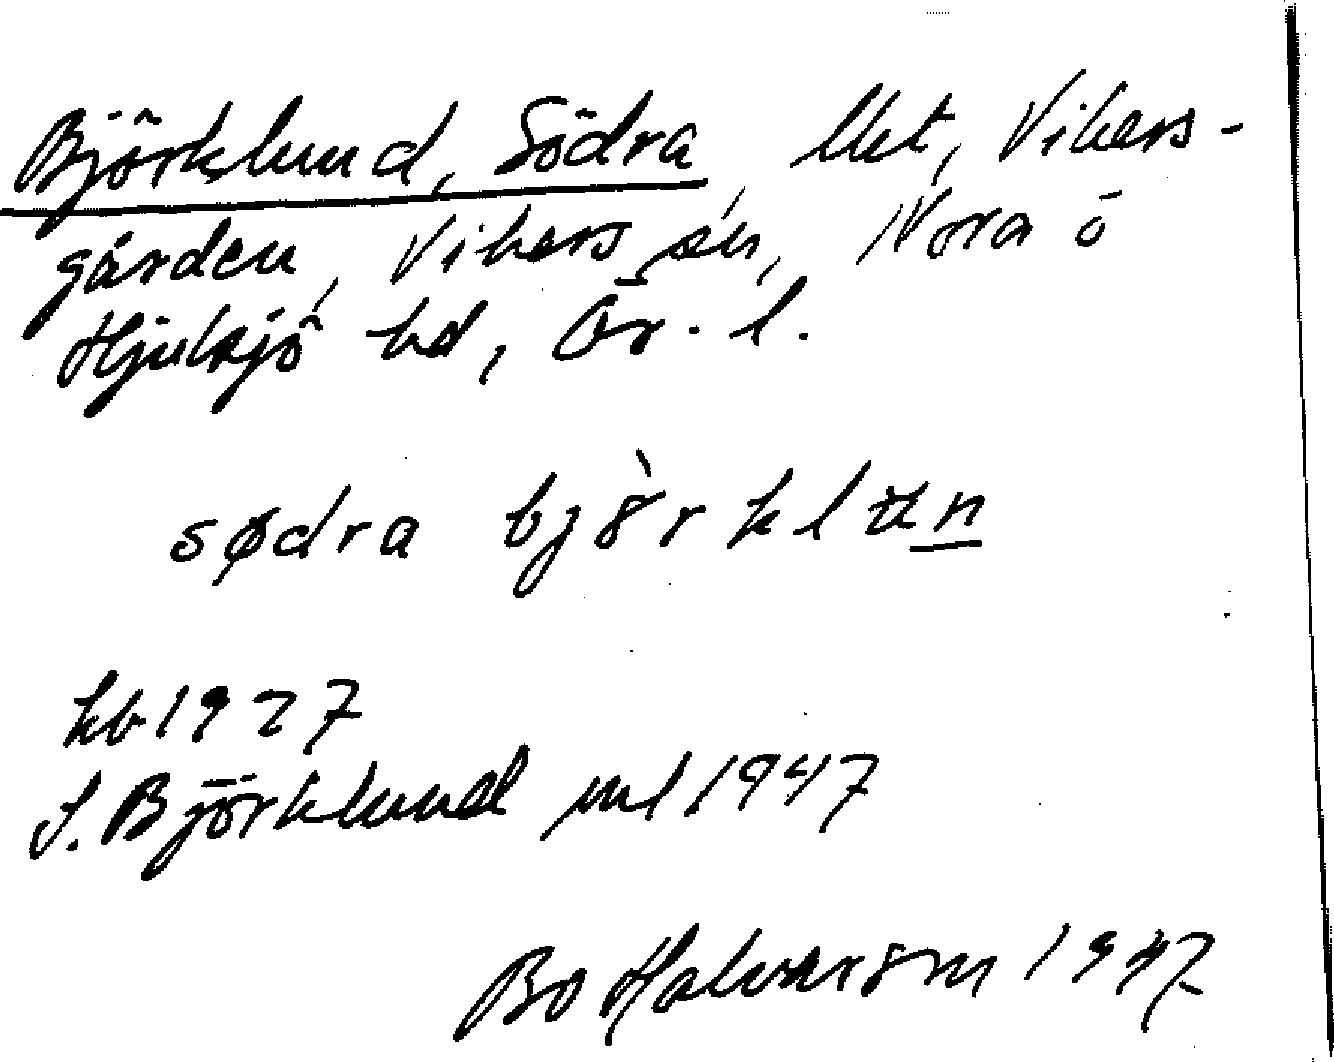 Björklund, Södra, lht, Vikers-
gården, Vikers sn, Nora o
Hjulsjö hd, Ör. l.
södra bjòrklun
kb 1927
S. Björklund ml 1947
Bo Halvarson 1947